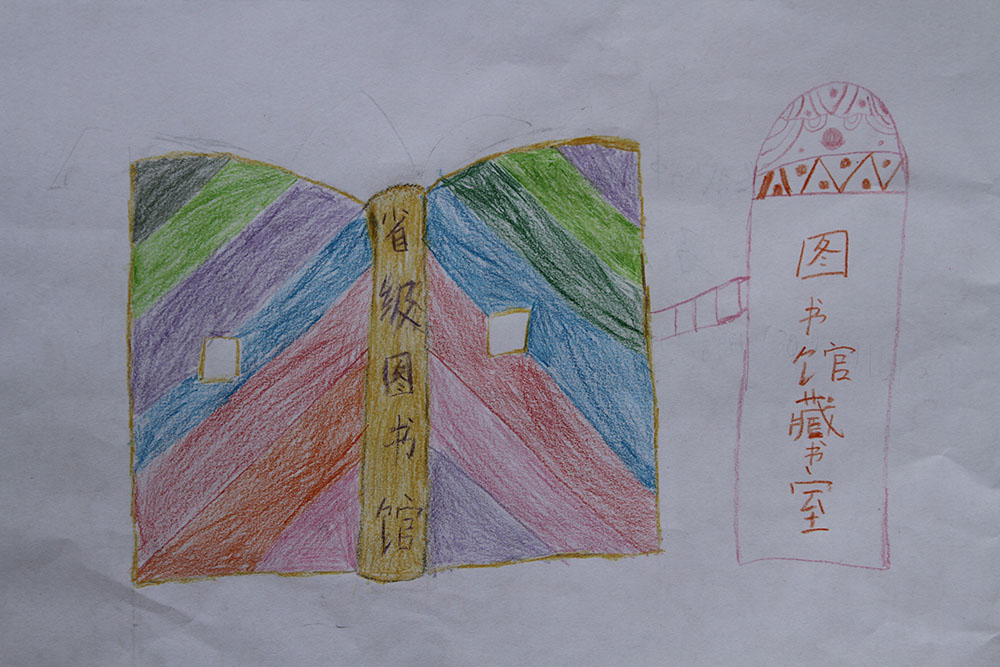 省级图书馆
图书馆藏书室